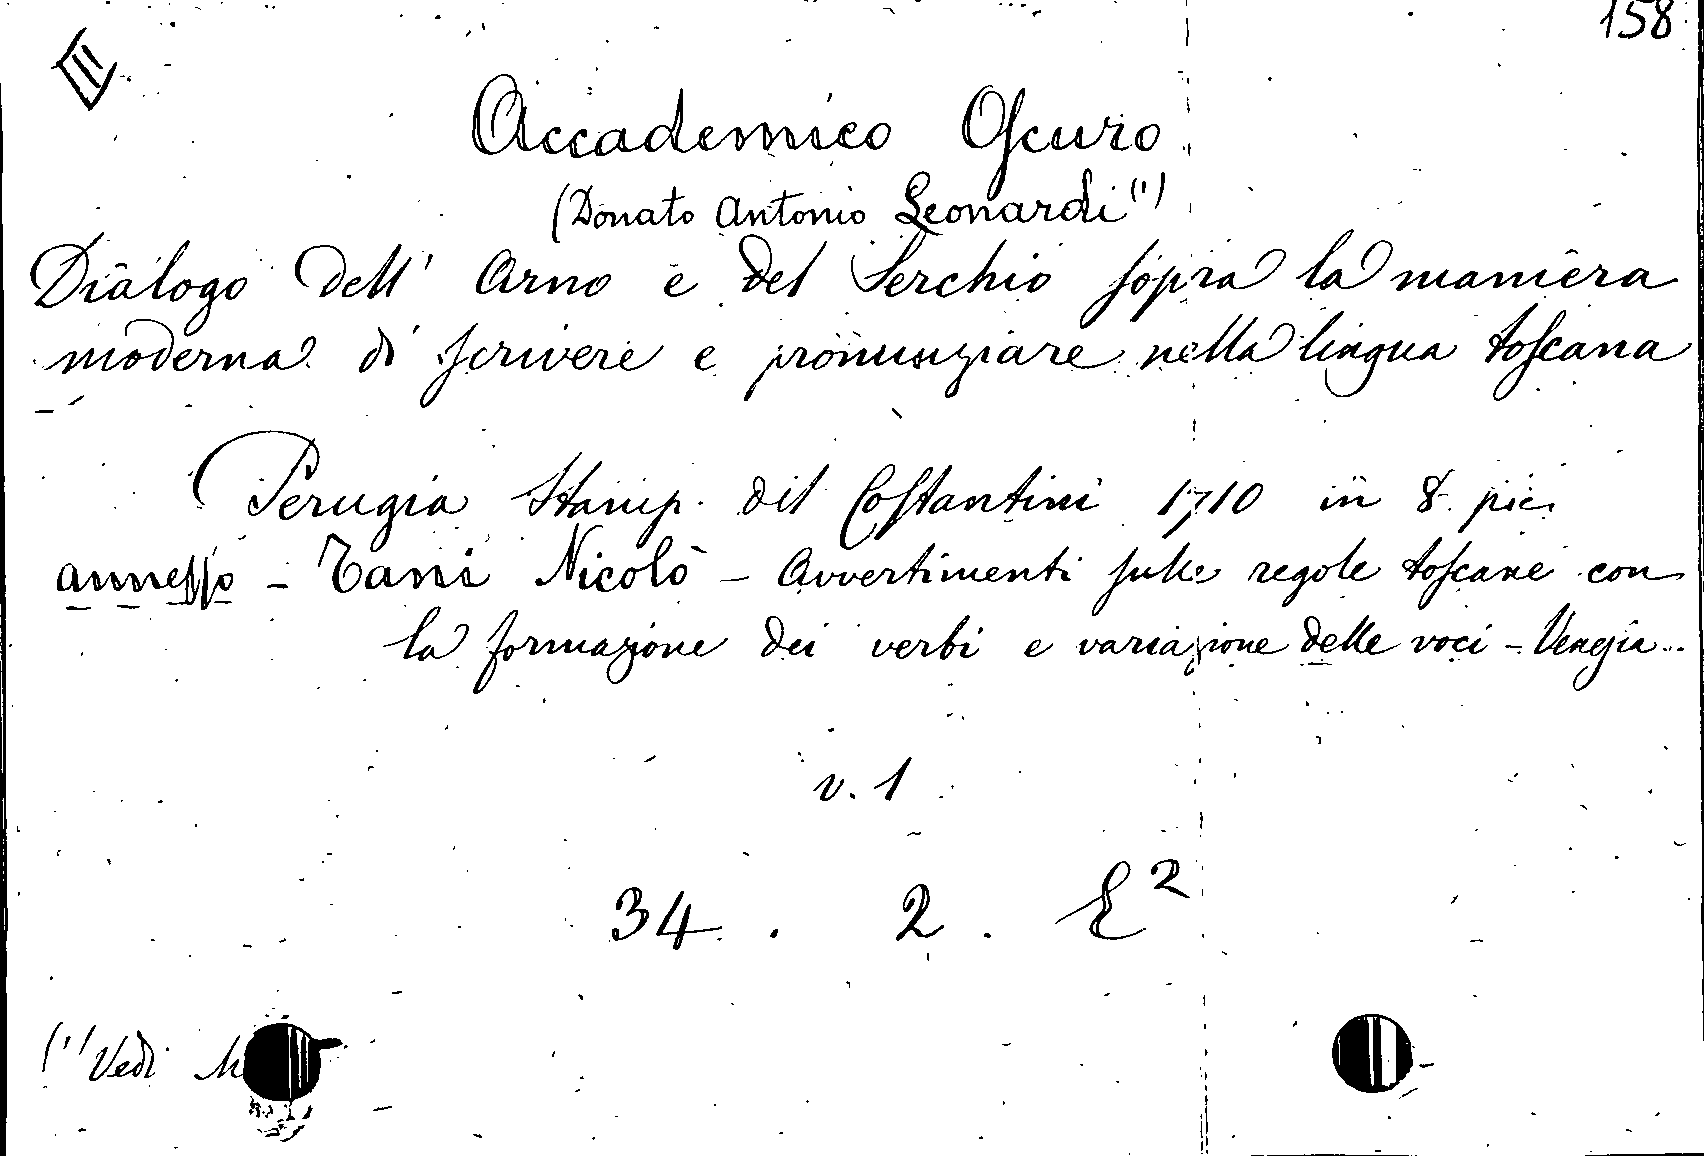 158
Accademico Oscuro
(Donato Antonio Leonardi (1)
Dialogo dell' Arno e del Serchio sopra la maniera
moderna di scrivere e pronunziare nella lingua toscana
Perugia Stamp. del Costantini 1710 in 8. pic.
annesso - Tani Nicolò - Avvertimenti sulle regole toscane con
la formazione dei verbi e variazione delle voci - Venezia
v. 1
34 . 2 . E 2
(1) Vedi